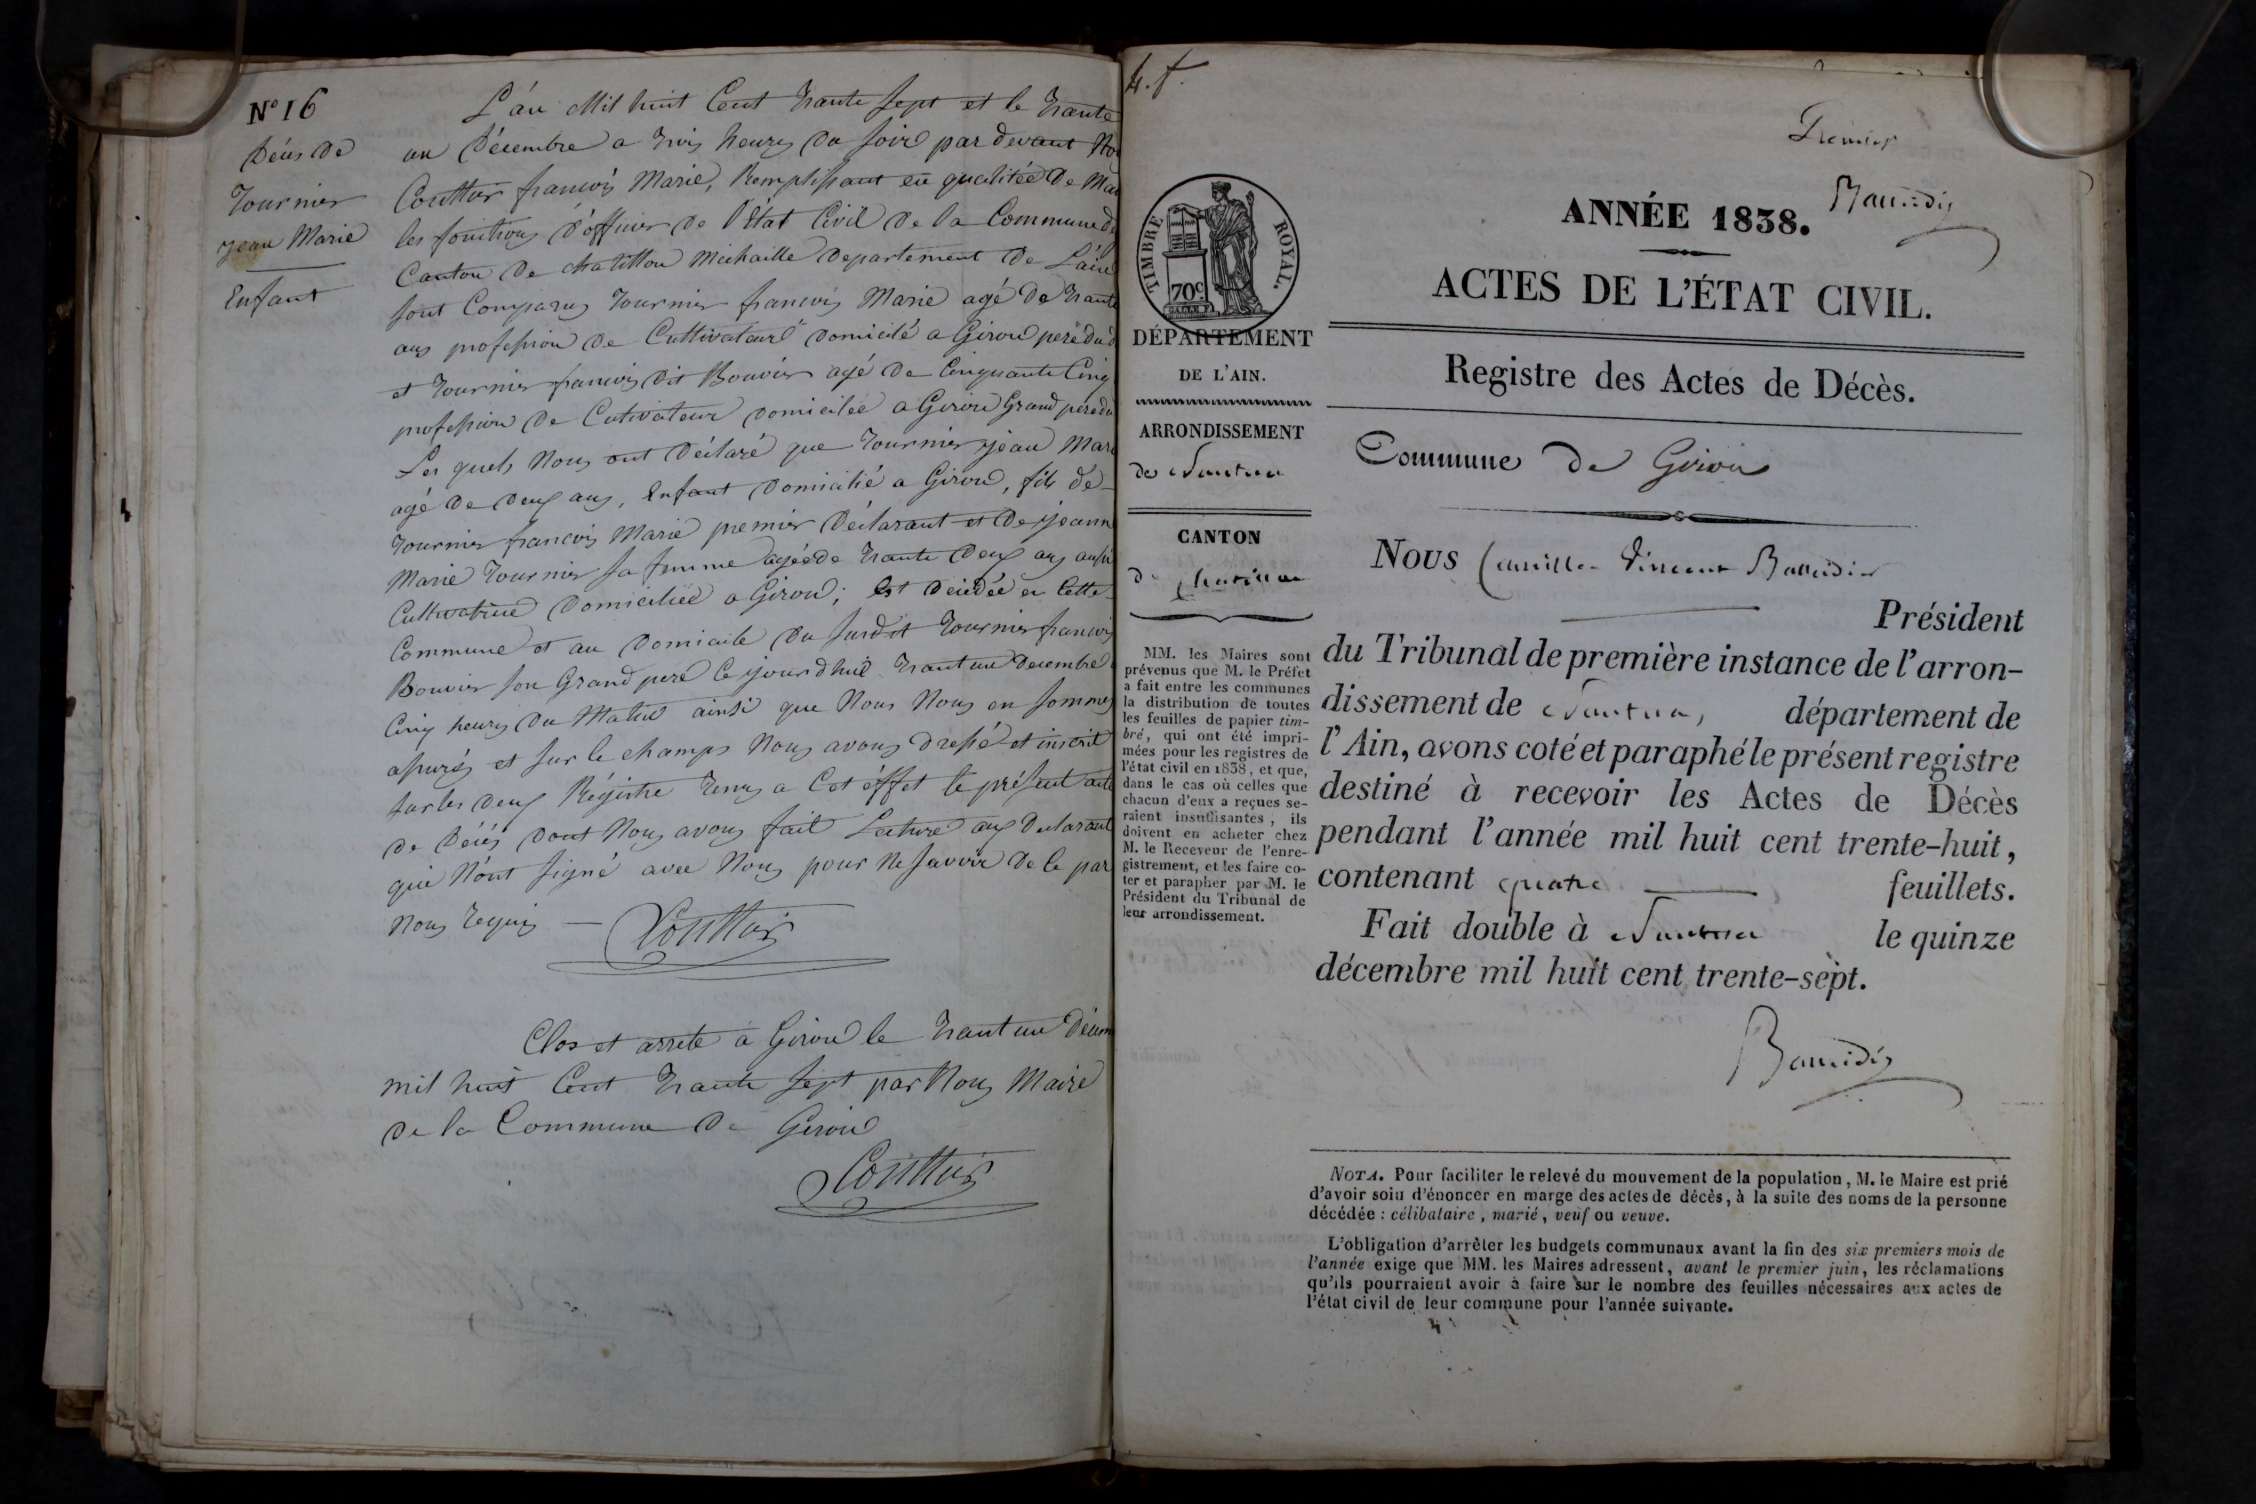 N° 16
Décès de
Tournier
jean Marie
Enfant
L'án Mil huit Cent trante sept et le trante
un Décembre a trois heures du soir par devant No
Couttier francois Marie, Remplissant en qualitée de Mai
les fonctions d'officier de l'État Civil de la Commune d
Canton de chatillon Michaille departement de L'áin
sont Comparus Tournier francois Marie agé de trante
ans profession de Cultivateur domicilé a Giron pere dud
et Tournier francois dit Bouvier agé de Cinquante Cinq
profession de Cutivateur domicilée a Giron Grand pere du
Les quels Nous ont Déclaré que Tournier jean Mari
agé de deux ans, Enfant domicilié a Giron, fils de
Tournier francois Marie premier Déclarant et de jeann
Marie Tournier sa femme agée de trante deux ans aussi
Cultivatrice domiciliée a Giron; Est deiedée en Cette
Commune et au domicile du susdit Tournier francois
Bouvier son Grand pere Ce jourdhui trant un decembre
Cinq heures du Matin ainsi que Nous Nous en sommes
assurés et sur le champs Nous avons dressé et inscrit
sur les deux Régistre tenus a Cet éffet le présent acte
de Décés dont Nous avons fait Lecture aux declarant
qui N'ont signé avec Nous pour Ne savoir de ce par
Nous requis — Couttier
Clos et arreté a Giron le trant un Décem
mil huit Cent trante sept par Nous Maire
de la Commune de Giron
Couttier
Premier
Baudin
ANNÉE 1838.
ACTES DE L'ÉTAT CIVIL.
TIMBRE ROYAL.
70c
DÉPARTEMENT
DE L'AIN.
ARRONDISSEMENT
de Nantua
CANTON
de Chatillon
MM. les Maires sont
prévenus que M. le Préfet
a fait entre les communes
la distribution de toutes
les feuilles de papier tim-
bré, qui ont été impri-
mées pour les registres de
l'état civil en 1838, et que,
dans le cas où celles que
chacun d'eux a reçues se-
raient insuffisantes, ils
doivent en acheter chez
M. le Receveur de l'enre-
gistrement, et les faire co-
ter et parapher par M. le
Président du Tribunal de
leur arrondissement.
Registre des Actes de Décès.
Commune de Giron
Nous Camille Vincent Baudin
Président
du Tribunal de première instance de l'arron-
dissement de Nantua, département de
l'Ain, avons coté et paraphé le présent registre
destiné à recevoir les Actes de Décès
pendant l'année mil huit cent trente-huit,
contenant quatre feuillets.
Fait double à Nantua le quinze
décembre mil huit cent trente-sept.
Baudin
NOTA. Pour faciliter le relevé du mouvement de la population, M. le Maire est prié
d'avoir soin d'énoncer en marge des actes de décès, à la suite des noms de la personne
décédée : célibataire, marié, veuf ou veuve.
L'obligation d'arrêter les budgets communaux avant la fin des six premiers mois de
l'année exige que MM. les Maires adressent, avant le premier juin, les réclamations
qu'ils pourraient avoir à faire sur le nombre des feuilles nécessaires aux actes de
l'état civil de leur commune pour l'année suivante.